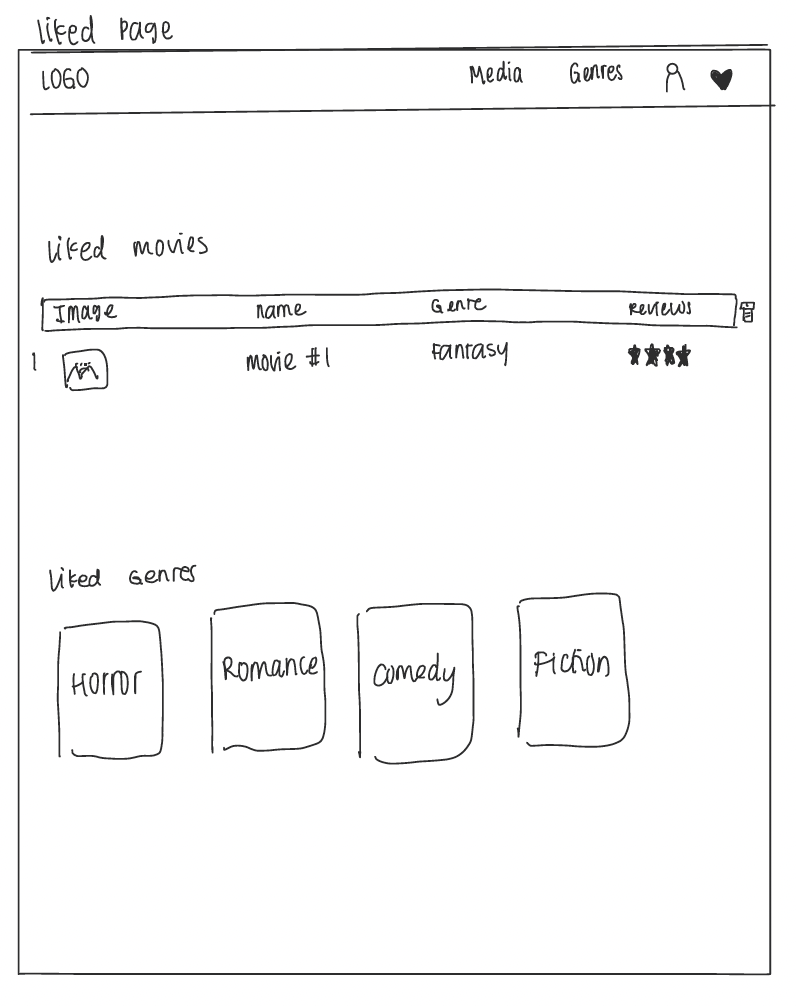 liked page
LOGO Media Genres
liked movies
Image name Genre Reviews
1 movie #1 Fantasy
liked Genres
Horror Romance Comedy Fiction